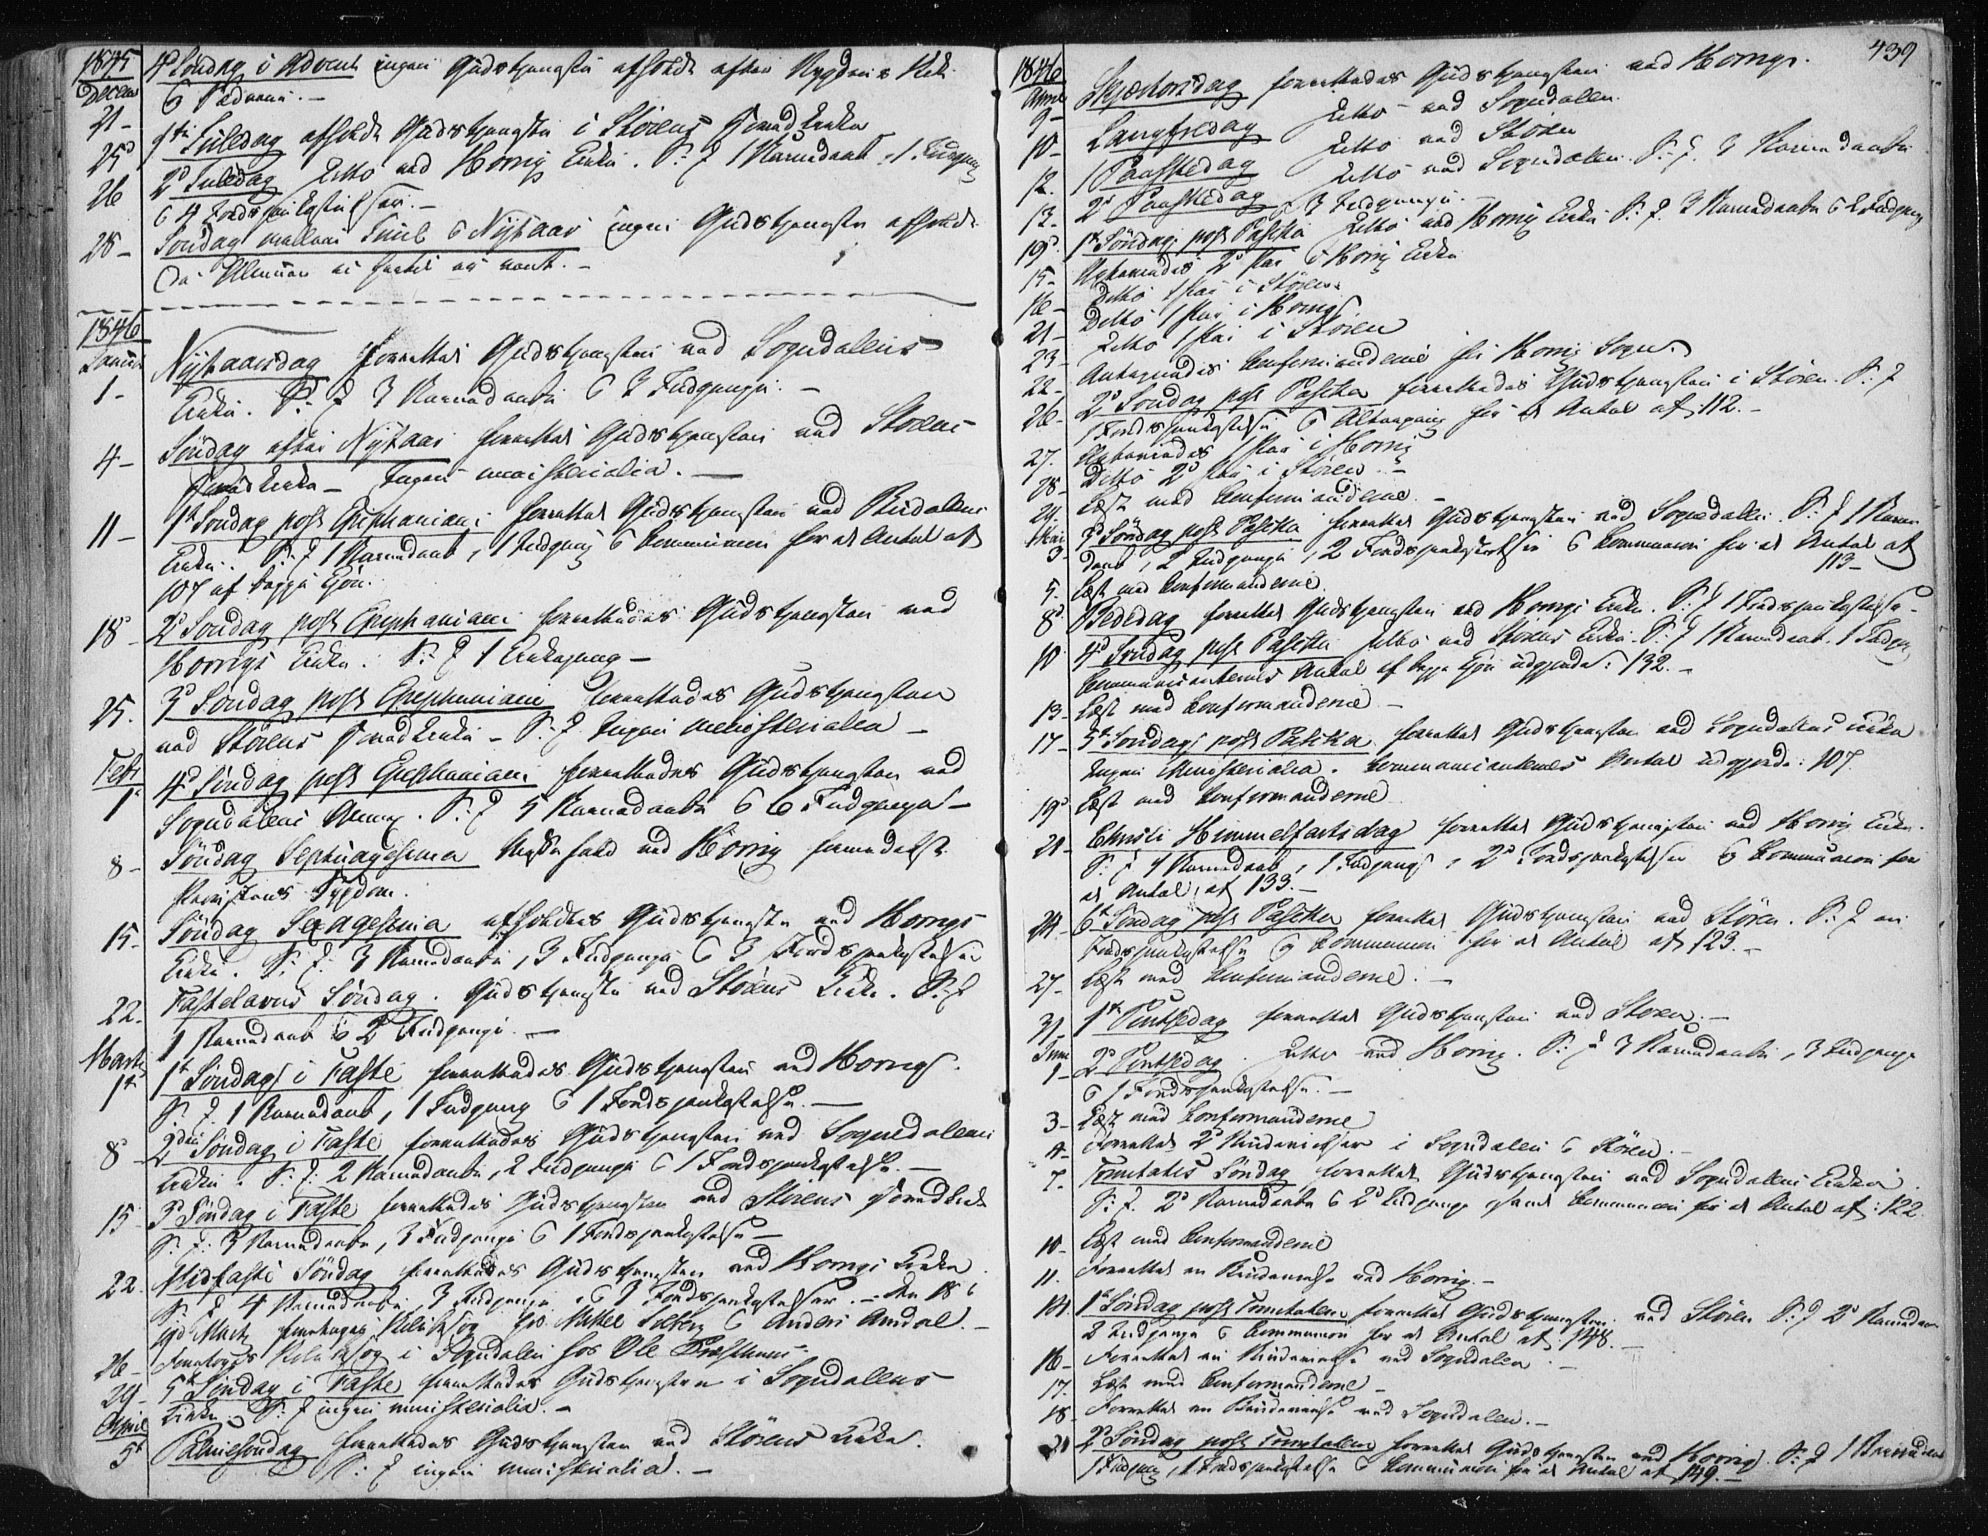 1845
Decem
4d Søndag i Advent ingen Gudstjeneste afholdt efter
21 -
25d 1ste Juledag afholdt Gudstjeneste i Størens Hovedkirke
26 2d Juledag ditto ved Horrig Kirke. P: J 1 Barnedaab, 1 Indgang
& 4 Jordspaakastelser. -
28 - Søndag mellem Juul & Nytaar ingen Gudstjeneste afholdt
da
1846
Januar
1 - Nytaarsdag forrettet Gudstjenesten ved Sogndalens
Kirke. P: J 3 Barnedaabe & 3 Indgange. -
4 - Søndag efter Nytaar forrettet Gudstjenesten ved Størens
Hovedkirke - Ingen ministerialia. -
11 - 1ste Søndag post Epiphaniam forrettet Gudstjenesten ved Budalens
Kirke. P: J 1 Barnedaab, 1 Indgang & Communion for et Antal af
107 af begge Kjøn.
18 - 2d Søndag post Epiphaniam forrettedes Gudstjenesten ved
Horrigs Kirke. P: J 1 Kirkegang -
25. 3d Søndag post Epiphaniam forrettedes Gudstjenesten
ved Størens Hovedkirke - P: J. Ingen ministerialia -
Febr
1 4d Søndag post Epiphaniam forrettedes Gudstjenesten ved
Sogndalens Annex. P: J 5 Barnedaabe & 6 Indgange -
8 - Søndag Septuagesima Messefald ved Horrig formedelst
Præstens Sygdom.
15 - Søndag Sexagesima afholdtes Gudstjeneste ved Horrigs
Kirke. P: J: 3 Barnedaabe, 3 Indgange & 3 Jordspaakastelser
22 - Fastelavns Søndag. Gudstjeneste ved Størens Kirke. P: J
1 Barnedaab & 2 Indgange. -
Marts
1ste 1st Søndag i Faste forrettedes Gudstjenesten ved Horrig.
P: J. 1 Barnedaab, 1 Indgang & 1 Jordspaakastelse. -
8 - 2den Søndag i Faste forrettedes Gudstjenesten ved Sogndalens
Kirke. P: J: 2 Barnedaabe, 2 Indgange & 1 Jordspaakastelse. -
15 3d Søndag i Faste forrettedes Gudstjenesten ved Størens Hovedkirke
P: J: 3 Barnedaabe, 3 Indgange & 1 Jordspaakastelse -
22. Midfaste Søndag forrettedes Gudstjenesten ved Horrigs Kirke.
P: J 4 Barnedaabe, 3 Indgange & 3 Jordspaakastelser. - den 18 i
26 - i Sogndalen hos Ole
29 - 5te Søndag i Faste forrettedes Gudstjenesten i Sogndalens
Kirke. P: J ingen ministerialia. -
April
5t Palmesøndag forrettedes Gudstjenesten ved Størens Kirke.
P: J ingen ministerialia. -
439
1846
April
9 - Skjærtorsdag forrettedes Gudstjenesten ved Horrig.
10 - Langfredag ditto ved Sogndalen.
12. 1 Paaskedag ditto ved Støren
13 - 2d Paaskedag ditto ved Sogndalen. P: J. 3 Barnedaabe
& 3 Indgange. -
19d. 1st Søndag post Paska ditto ved Horrig Kirke P: J. 3 Barnedaabe & 2 Indgange
15 - 2d Par i Horrig Kirke
16 - Ditto 1 Par i Støren.
21 - Ditto 1 Par i Horrig
23 - Ditto 1 Par i Støren
22 - Antegnedes Confirmanderne for Horrig Sogn.
26 - 2d Søndag post Paska forrettedes Gudstjenesten i Støren. P: J
1 Jordspaakastelse & Altergang for et Antal af 112. -
27. 1 Par i Horrig
28 - Ditto 2d Par i Støren. -
29 - Læst med Confirmanderne. -
Mai
3 3d Søndag post Paska forrettet Gudstjenesten ved Sogndalen. P: J 1 Barne
daab, 2 Indgange, 2 Jordspaakastelser & Communion for et Antal af
113 -
5. Læst med Confirmanderne
8d Bededag forrettet Gudstjenesten ved Horrigs Kirke. P: J 1 Jordspaakastelse -
10 4d Søndag post Paska ditto ved Størens Kirke. P: J 1 Barnedaab. 1 Indgang
Communicanternes Antal af begge Kjøn udgjorde: 132. -
13 - Læst med Confirmanderne -
17 - 5te Søndag post Paska forrettet Gudstjenesten ved Sogndalens Kirke
Ingen Ministerialia. Communicanternes Antal udgjorde: 107
19d Læst med Confirmanderne
21 - Christi Himmelfartsdag forrettet Gudstjenesten ved Horrig Kirke.
P: J 1 Barnedaab, 1 Indgang, 2d Jordspaakastelser & Communion for
et Antal af 133. -
24 - 6te Søndag post Paska forrettet Gudstjenesten ved Støren. P: J en
Jordspaakastelse & Communion for et Antal af 123. -
27 - Læst med Confirmanderne. -
31 - 1ste Pintsedag forrettet Gudstjenesten ved Støren. -
Juni
1 - 2d Pintsedag. ditto ved Horrig. P: J 3 Barnedaabe, 3 Indgange
& 1 Jordspaakastelse. -
3 - Læst med Confirmanderne
4 - Forrettet 2d i Sogndalen & Støren. -
7. Trinitatis Søndag forrettet Gudstjenesten ved Sogndalens Kirke.
P: J. 2d Barnedaabe & 2d Indgange samt Communion for et Antal af: 122.
10 - Læst med Confirmanderne
11. Forrettet en ved Horrig. -
14. 1st Søndag post Trinitatem forrettet Gudstjenesten ved Støren P: J 2d Barnedaabe
2 Indgange & Communion for et Antal af 148. -
16 - Forrettet en ved Sogndalen. -
17. Læst med Confirmanderne -
18 - Forrettet en ved Sogndalen. -
21 2d Søndag post Trinitatem forrettet Gudstjenesten ved Horrig. P: J 1 Barnedaab
1 Indgang, 1 Jordspaakastelse & Communion for et Antal af 149. -